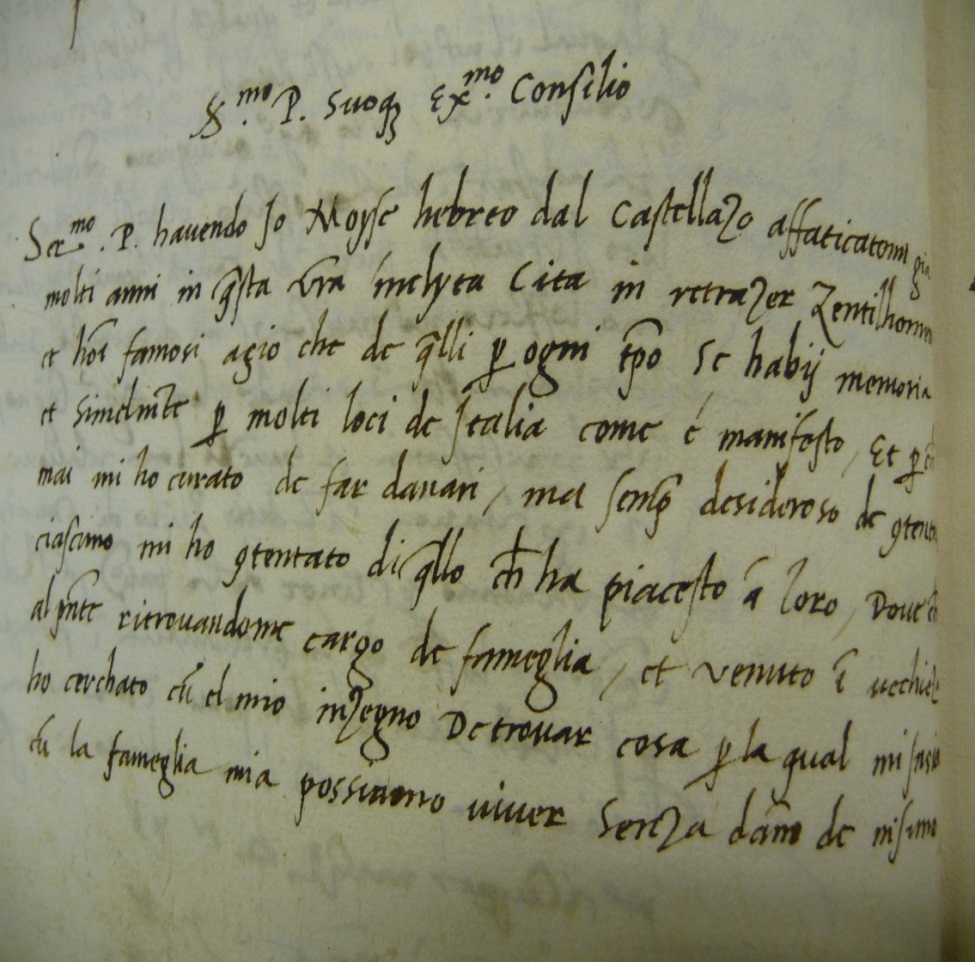 S.mo P. Suoqꝫ Ex.mo Consilio
Ser.mo P. havendo Jo Moyse hebreo dal Castellazo affaticatomi già
molti anni in q̃sta vr̃a inclyta Cita in retrazer Zentilhomeni
et hoĩ famosi açio che de q̃lli ꝑ ogni tp̃o se habij memoria
et simelmẽte ꝑ molti loci de Italia come é manifesto, Et ꝑ
mai mi ho curato de far danari, ma semp̃ desideroso de ꝯtent
ciascuno mi ho ꝯtentato di q̃llo ch̃ ha piacesto ã loro, Dove ch̃
al p̃nte ritrovandome cargo de fameglia, et venuto ĩ vechieza
ho cerchato cũ el mio inzegno De trovar cosa ꝑ la qual mi
cũ la fameglia mia possiamo viver senza dãno de nisuno